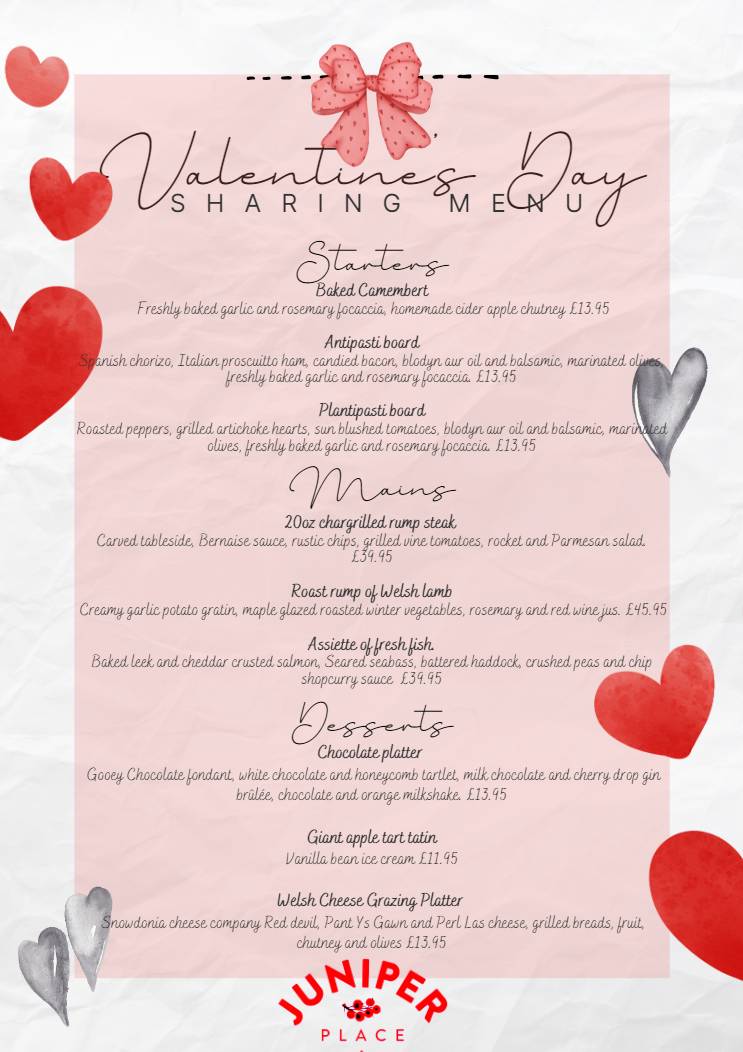 Valentine's Day
SHARING MENU
Starters
Baked Camembert
Freshly baked garlic and rosemary focaccia, homemade cider apple chutney £13.95
Antipasti board
Spanish chorizo, Italian proscuitto ham, candied bacon, blodyn aur oil and balsamic, marinated olives,
freshly baked garlic and rosemary focaccia. £13.95
Plantipasti board
Roasted peppers, grilled artichoke hearts, sun blushed tomatoes, blodyn aur oil and balsamic, marinated
olives, freshly baked garlic and rosemary focaccia. £13.95
Mains
20oz chargrilled rump steak
Carved tableside, Bernaise sauce, rustic chips, grilled vine tomatoes, rocket and Parmesan salad.
£39.95
Roast rump of Welsh lamb
Creamy garlic potato gratin, maple glazed roasted winter vegetables, rosemary and red wine jus. £45.95
Assiette of fresh fish.
Baked leek and cheddar crusted salmon, Seared seabass, battered haddock, crushed peas and chip
shopcurry sauce £39.95
Desserts
Chocolate platter
Gooey Chocolate fondant, white chocolate and honeycomb tartlet, milk chocolate and cherry drop gin
brûlée, chocolate and orange milkshake. £13.95
Giant apple tart tatin
Vanilla bean ice cream £11.95
Welsh Cheese Grazing Platter
Snowdonia cheese company Red devil, Pant Ys Gawn and Perl Las cheese, grilled breads, fruit,
chutney and olives £13.95
JUNIPER
PLACE